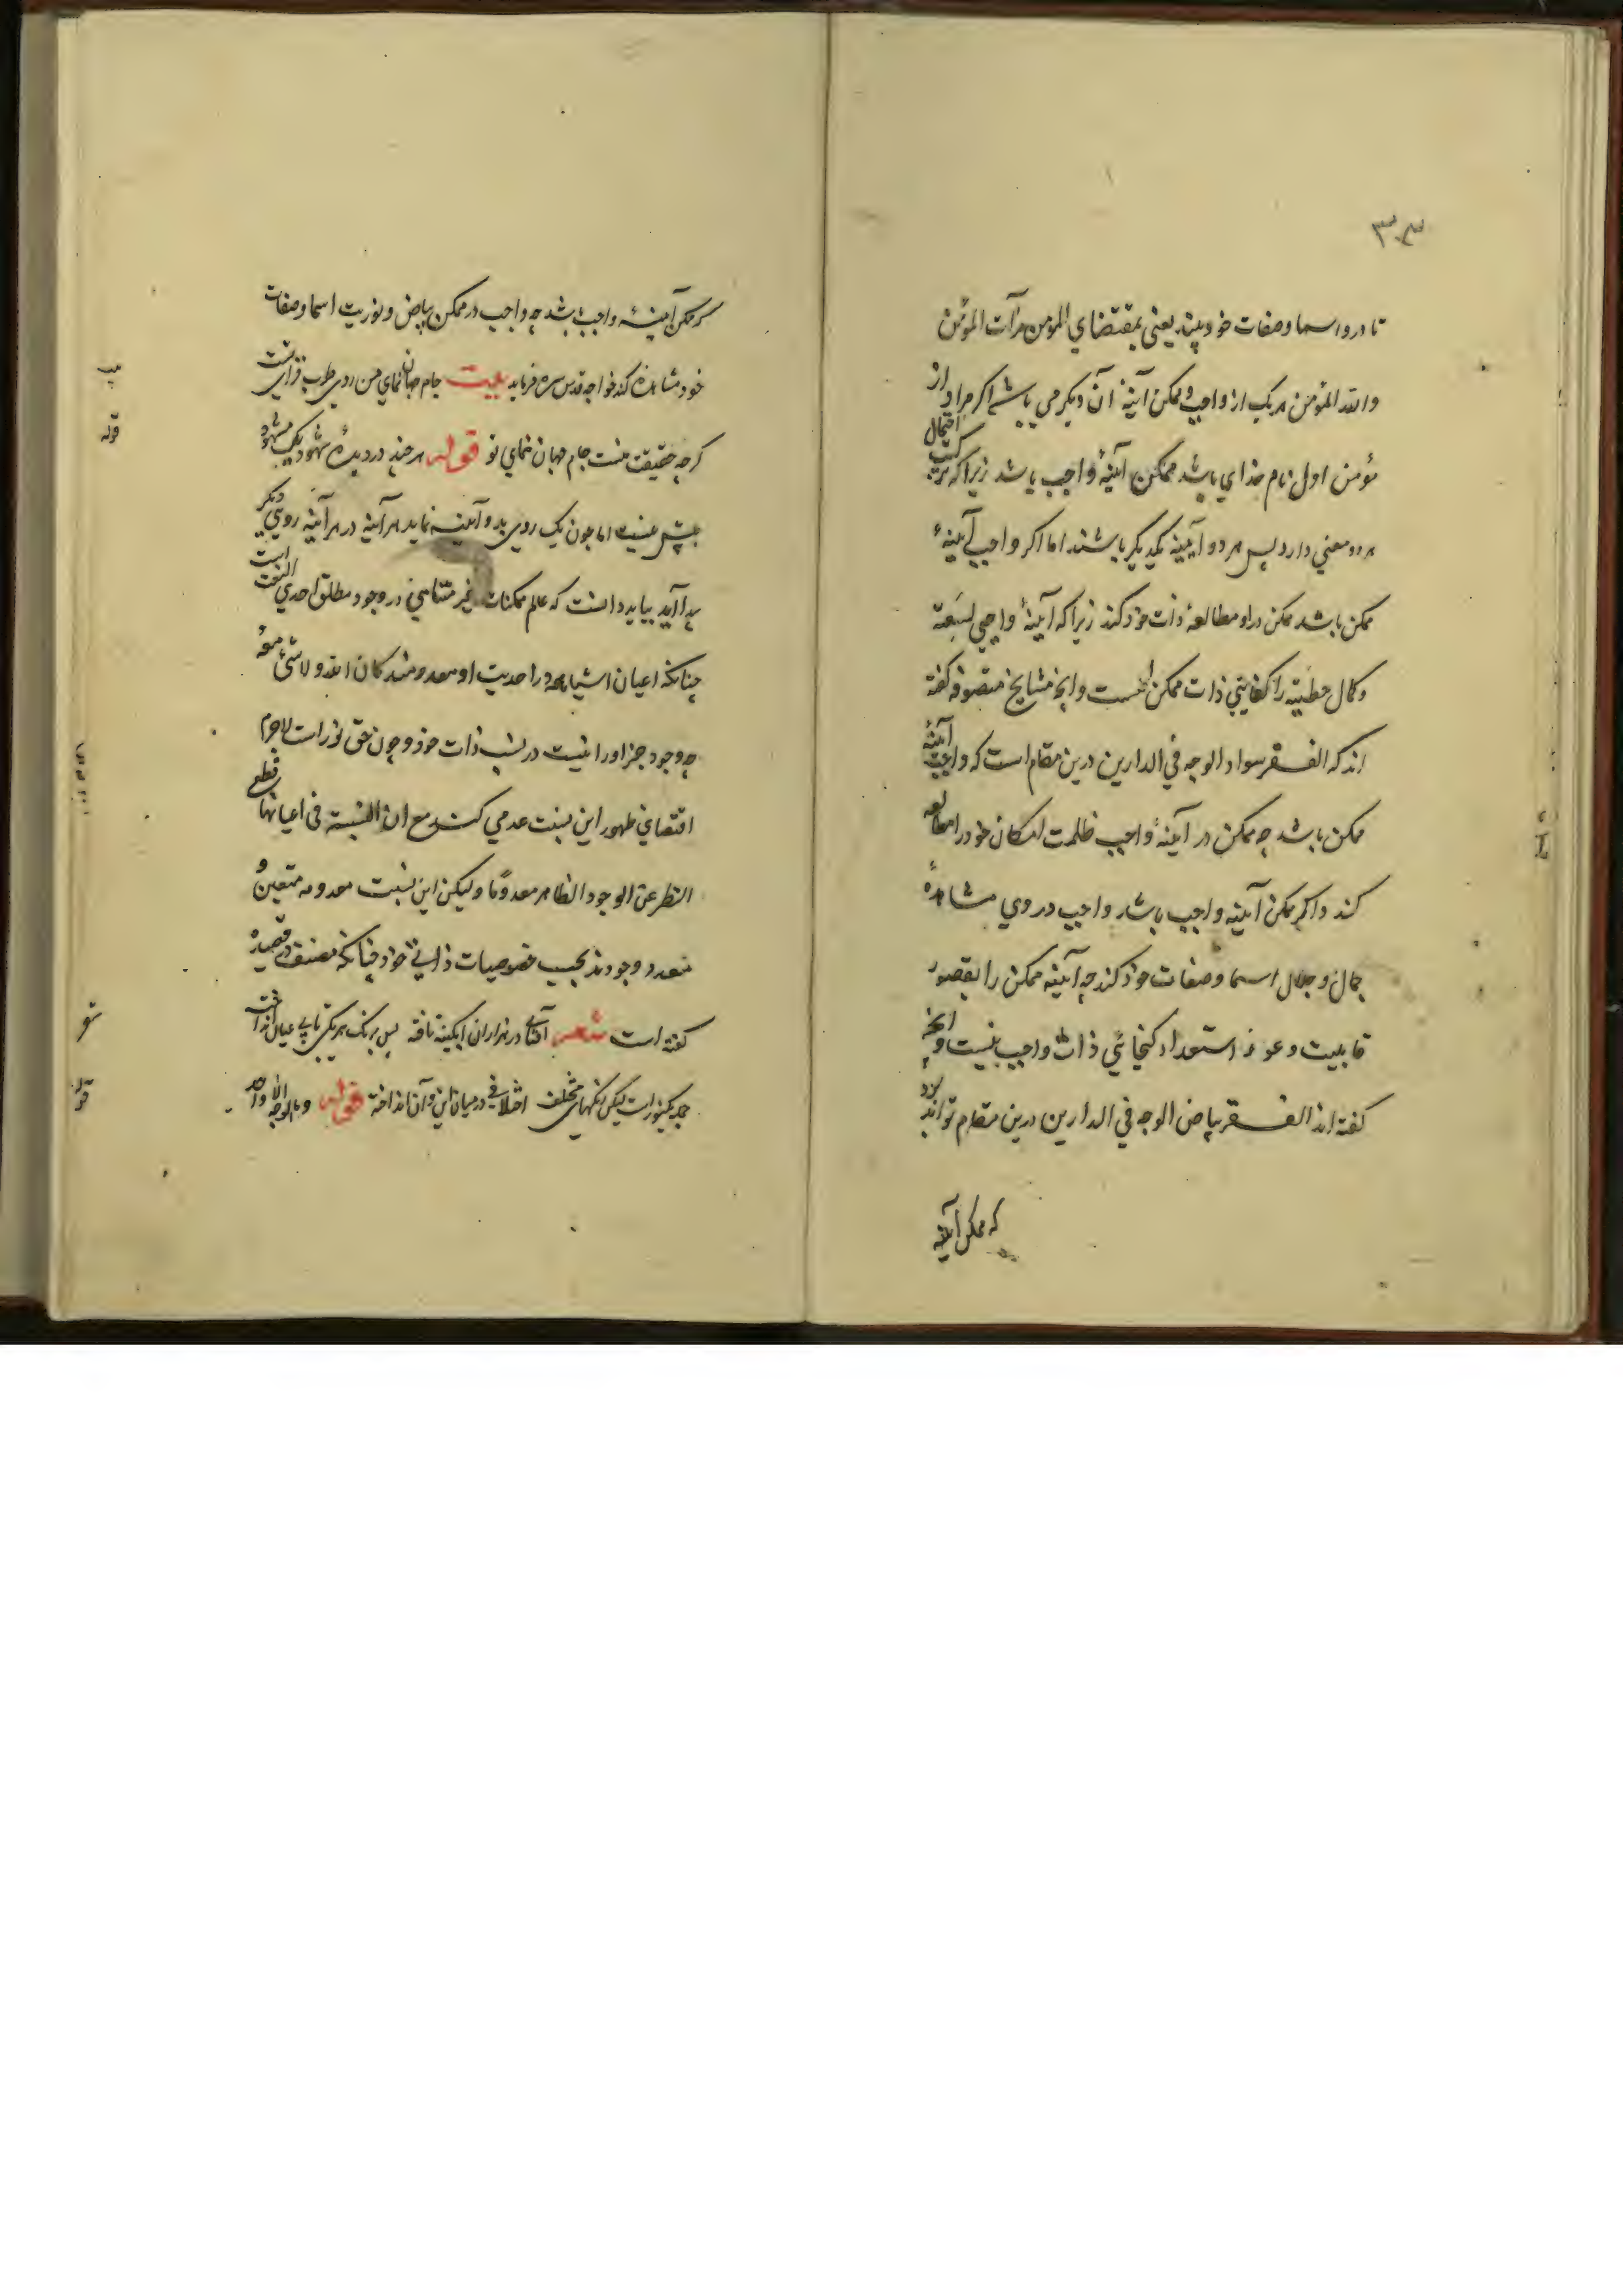 ۳۰۳
تا درو اسما و صفات خود بیند یعنی بمقتضای المؤمن مرآت المؤمن
والله المؤمن هر یک از واجب و ممکن آینهٔ آن دیگر می باشد اگر مراد از
مؤمن اول نام خدای باشد ممکن آینهٔ واجب باشد زیرا که ترکیب احتمال
هر دو معنی دارد پس هر دو آیینه یکدیگر باشند اما اگر واجب آیینهٔ
ممکن باشد ممکن در او مطالعهٔ ذات خود کند زیرا که آینهٔ واجبی لسعة
و کمال حیطته را گنجایی ذات ممکن هست و آنچه مشایخ متصوفه گفته
اند که الفقر سواد الوجه فی الدارین درین مقام است که واجب آینهٔ
ممکن باشد چه ممکن در آینهٔ واجب ظلمت امکان خود را مطالعه
کند و اگر ممکن آینه واجب باشد واجب در وی مشاهدهٔ
جمال و جلال اسما و صفات خود کند چه آینه ممکن را بقصور
قابلیت و عوز استعداد گنجائی ذات واجب نیست و آنچه
گفته اند الفقر بیاض الوجه فی الدارین درین مقام تواند بود
که ممکن آینه
که ممکن آینهٔ واجب باشد چه واجب در ممکن بیاض و نوریت اسما و صفات
خود مشاهده کند خواجه قدس سره فرماید بیت جام جهان نمای من روی طرب فزای تست
گرچه حقیقت منست جام جهان نمای تو قوله هر چند در دیدهٔ شهود یک مشهود
بیش نیست اما چون یک روی بدو آیینه نماید هر آینه در هر آینه رویی دیگر
پیدا آید بباید دانست که عالم ممکنات غیر متناهی در وجود مطلق احدی النعت است
چنانکه اعیان اشیا همه در احدیت او معدومند کان الله و لا شیء معه
چه وجود جز او را نیست در نسب ذات خود و چون حق نور است لاجرم
اقتضای ظهور این نسبت عدمی کند مع ان النسبة فی اعیانها قطع
النظر عن الوجود الظاهر معدوما و لیکن این نسبت معدومه متعین و
متعدد وجودند بحسب خصوصیات ذاتی خود چنانکه مصنف در قصیده
گفته است شعر آفتابی در هزاران آبگینه تافته پس برنگ هر یکی تابی عیان انداخت
جمله یکنورست لیکن رنگهای مختلف اختلافی در میان این و آن انداخته قوله و ما الوجه الا واحد